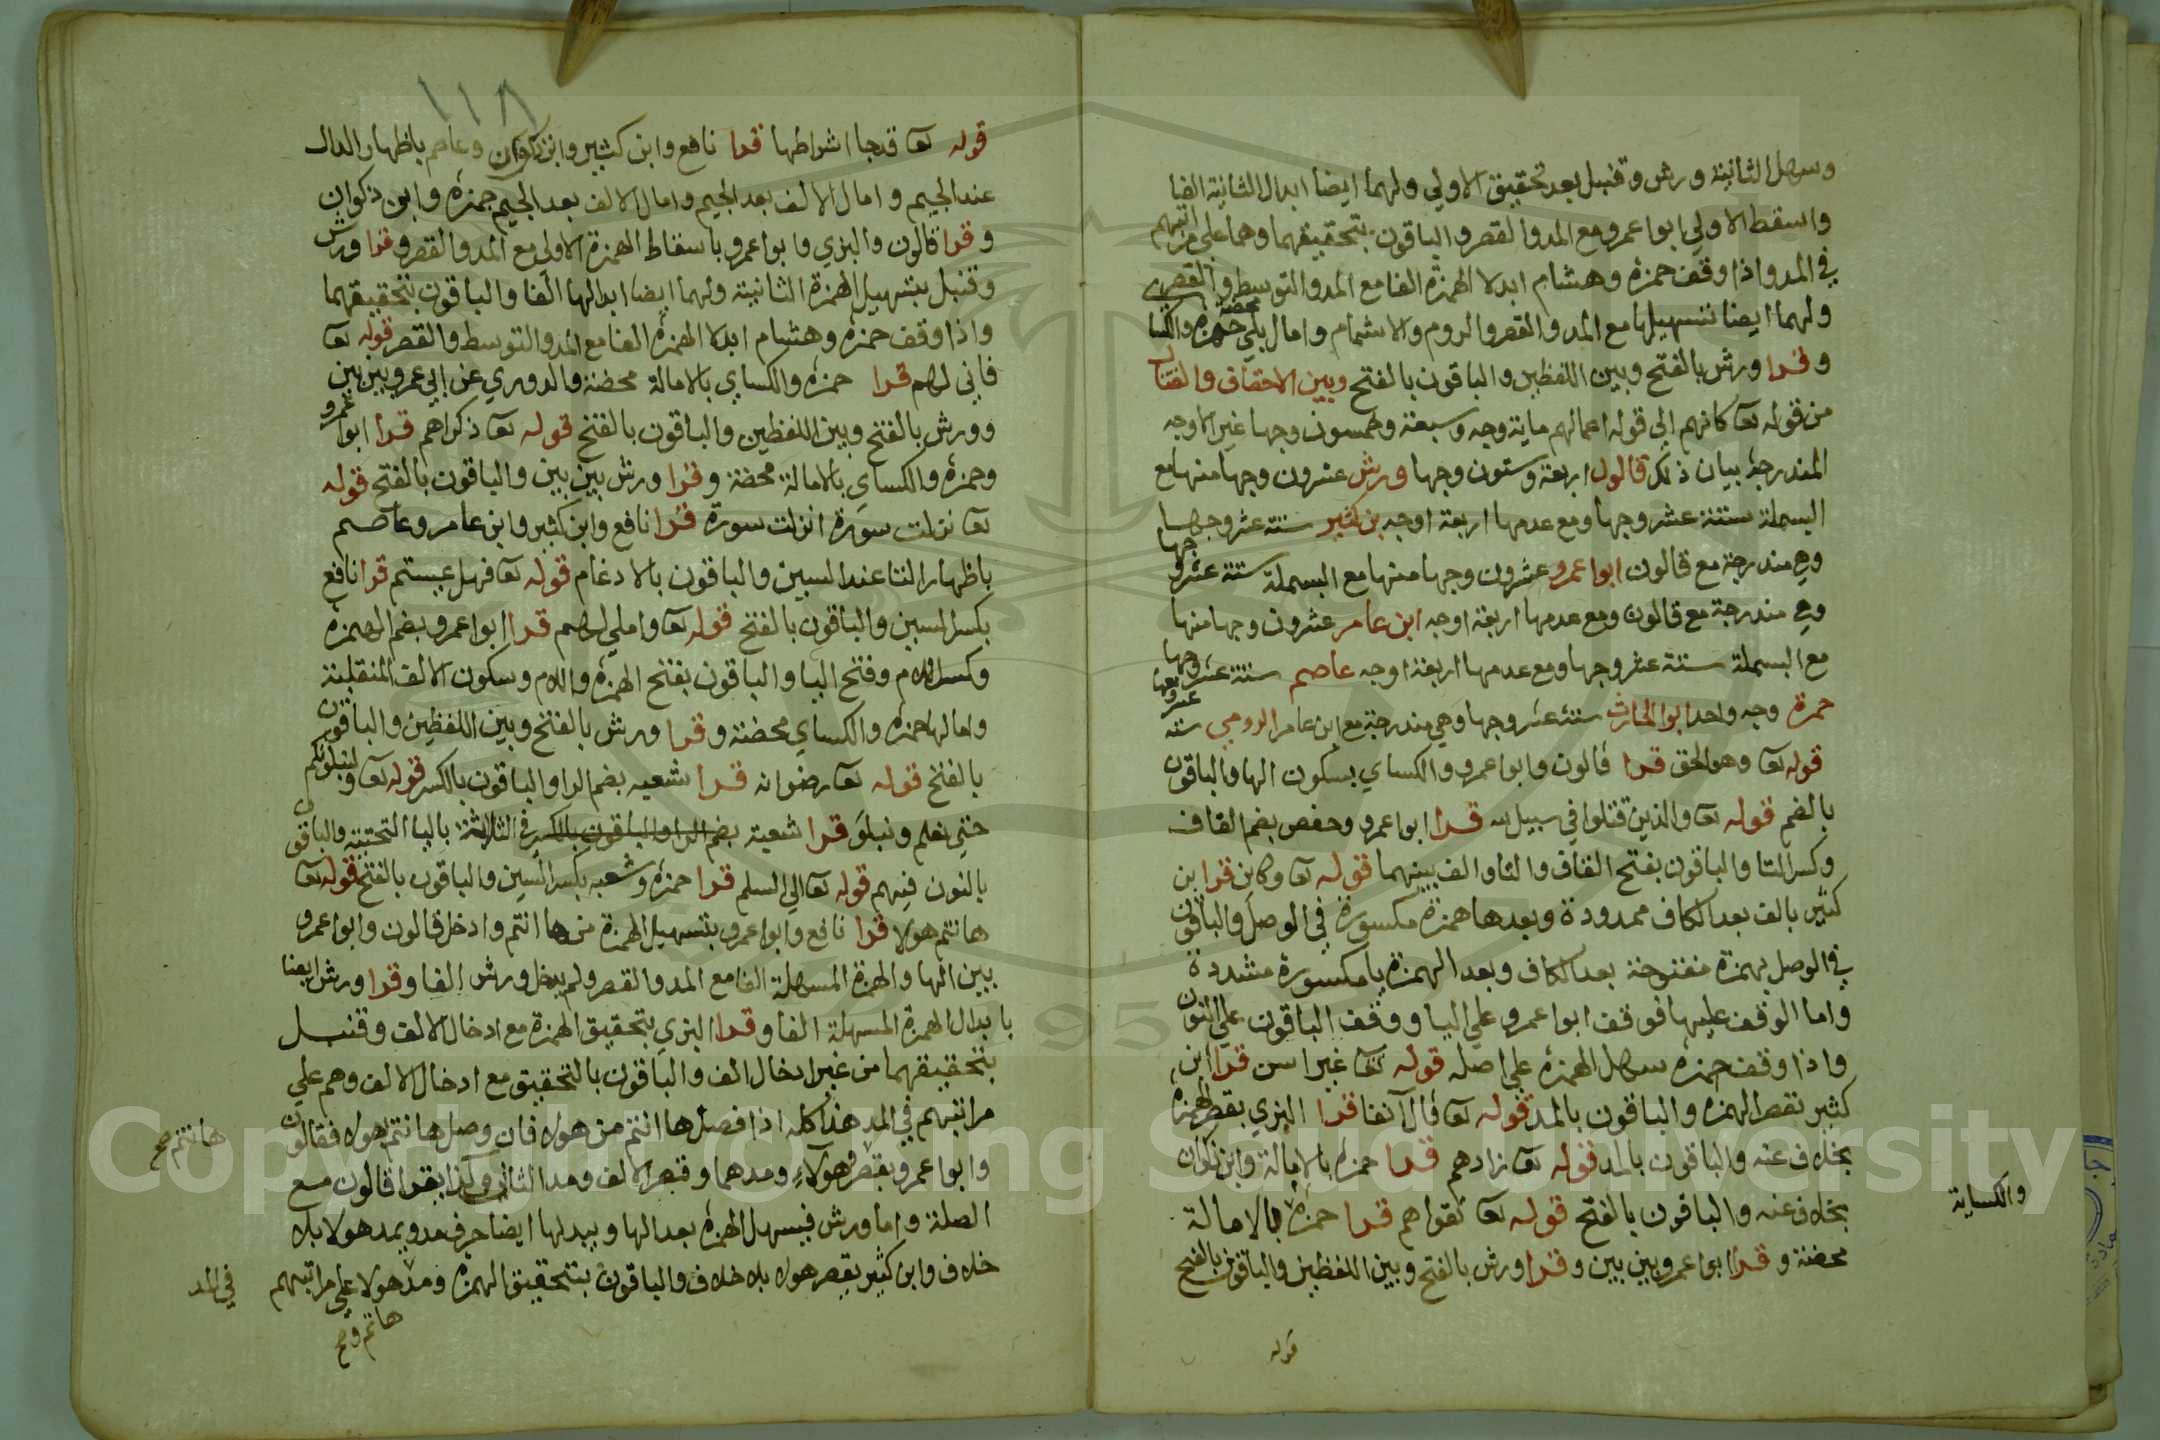 وسهل الثانية ورش وقنبل بعد تحقيق الاولي ولهما ايضا ابدال الثانية الفا
واسقط الاولي ابوا عمرو مع المد والقصر والباقون بتحقيقهما وهما علي مراتبهم
في المد واذا وقف حمزة وهشام ابدلا الهمزة الفا مع المد والتوسط والقصر
ولهما ايضا تسهيلها مع المد والقصر والروم والاشمام وامال بلي محضة حمزة والكسا
وقرا ورش بالفتح وبين اللفظين والباقون بالفتح وبين الاحقاف والقتال
من قوله تعا كانهم الي قوله اعمالهم ماية وجه وسبعة وخمسون وجها غير الاوجه
المندرجة بيان ذلك قالون اربعة وستون وجها ورش عشرون وجها منها مع
البسملة ستة عشر وجها ومع عدمها اربعة اوجه بن كثير ستة عشر وجها
وهي مندرجة مع قالون ابوا عمرو عشرون وجها منها مع البسملة ستة عشر وجها
وهي مندرجة مع قالون ومع عدمها اربعة اوجه ابن عامر عشرون وجها منها
مع البسملة ستة عشر وجها ومع عدمها اربعة اوجه عاصم ستة عشر وجها
حمزة وجه واحد ابوا الحارث ستة عشر وجها وهي مندرجة مع ابن عامر الدوري ستة عشر وجها
قوله تعا وهو الحق قرا قالون وابوا عمرو والكساي بسكون الها والباقون
بالضم قوله تعا والذين قتلوا في سبيل الله قرا ابوا عمرو وحفص بضم القاف
وكسر التا والباقون بفتح القاف والتا والف بينهما قوله تعا وكاين قرا بن
كثير بالف بعد الكاف ممدودة وبعدها همزة مكسورة في الوصل والباقون
في الوصل بهمزة مفتوحة بعد الكاف وبعد الهمزة يا مكسورة مشددة
واما الوقف عليها فوقف ابوا عمرو علي اليا ووقف الباقون علي النون
واذا وقف حمزه سهل الهمزة علي اصله قوله تعا غير اسن قرا ابن
كثير بقصر الهمزه والباقون بالمد قوله تعا قال آنفا قرا البزي بقصر الهمزة
بخلاف عنه والباقون بالمد قوله تعا زادهم قرا حمزة بالامالة وابن ذكوان
بخلاف عنه والباقون بالفتح قوله تعا تقواهم قرا حمزة بالامالة
والكساية
محضة وقرا ابوا عمرو بين بين وقرا ورش بالفتح وبين اللفظين والباقون بالفتح
قوله
١١٨
قوله تعا قد جا اشراطها قرا نافع وابن كثير وابن ذكوان وعاصم باظهار الدال
عند الجيم وامال الالف بعد الجيم وامال الالف بعد الجيم حمزة وابن ذكوان
وقرا قالون والبزي وابوا عمرو باسقاط الهمزة الاولي مع المد والقصر وقرا ورش
وقنبل بتسهيل الهمزة الثانية ولهما ايضا ابدالها الفا والباقون بتحقيقهما
واذا وقف حمزة وهشام ابدلا الهمزة الفا مع المد والتوسط والقصر قوله تعا
فاني لهم قرا حمزه والكساي بالامالة محضة والدوري عن ابي عمرو بين بين
وورش بالفتح وبين اللفظين والباقون بالفتح قوله تعا ذكراهم قرا ابوا عمرو
وحمزه والكساي بالامالة محضة وقرا ورش بين بين والباقون بالفتح قوله
تعا نزلت سورة انزلت سورة قرا نافع وابن كثير وابن عامر وعاصم
باظهار التا عند السين والباقون بالادغام قوله تعا فهل عيستم قرا نافع
بكسر السين والباقون بالفتح قوله تعا واملي لهم قرا ابوا عمرو بضم الهمزة
وكسر اللام وفتح اليا والباقون بفتح الهمزة واللام وسكون الالف المنقلبة
وامالها حمزه والكساي محضة وقرا ورش بالفتح وبين اللفظين والباقون
بالفتح قوله تعا رضوانه قرا شعبه بضم الرا والباقون بالكسر قوله تعا ولنبلونكم
حتي نعلم ونبلو قرا شعبة بضم الرا والباقون بالكسر في الثلاثة باليا التحتية والباقون
بالنون فيهم قوله تعا الي السلم قرا حمزه وشعبه بكسر السين والباقون بالفتح قوله تعا
هانتم هولا قرا نافع وابوا عمرو بتسهيل الهمزة من ها انتم وادخل قالون وابوا عمرو
بين الها والهمزة المسهلة الفا مع المد والقصر ولم يدخل ورش الفا وقرا ورش ايضا
بابدال الهمزة المسهلة الفا وقرا البزي بتحقيق الهمزة مع ادخال الالف وقنبل
بتحقيقهما من غير ادخال الف والباقون بالتحقيق مع ادخال الالف وهم علي
مراتبهم في المد هذا كله اذا فصل ها انتم من هولا فان وصل هانتم بهولا فقالون
هانتم صح
وابوا عمرو بقصر هولاء ومدهما وقصر الالف ومد الثاني وكذا يقرا قالون مع
الصلة واما ورش فيسهل الهمزة بعد الها ويبدلها ايضا حرف مد ويمد هولا بلا
خلاف وابن كثير يقصر هولا بلا خلاف والباقون بتحقيق الهمزة ومد هولا علي مراتبهم في المد
هانتم و صح
Copyright © King Saud University